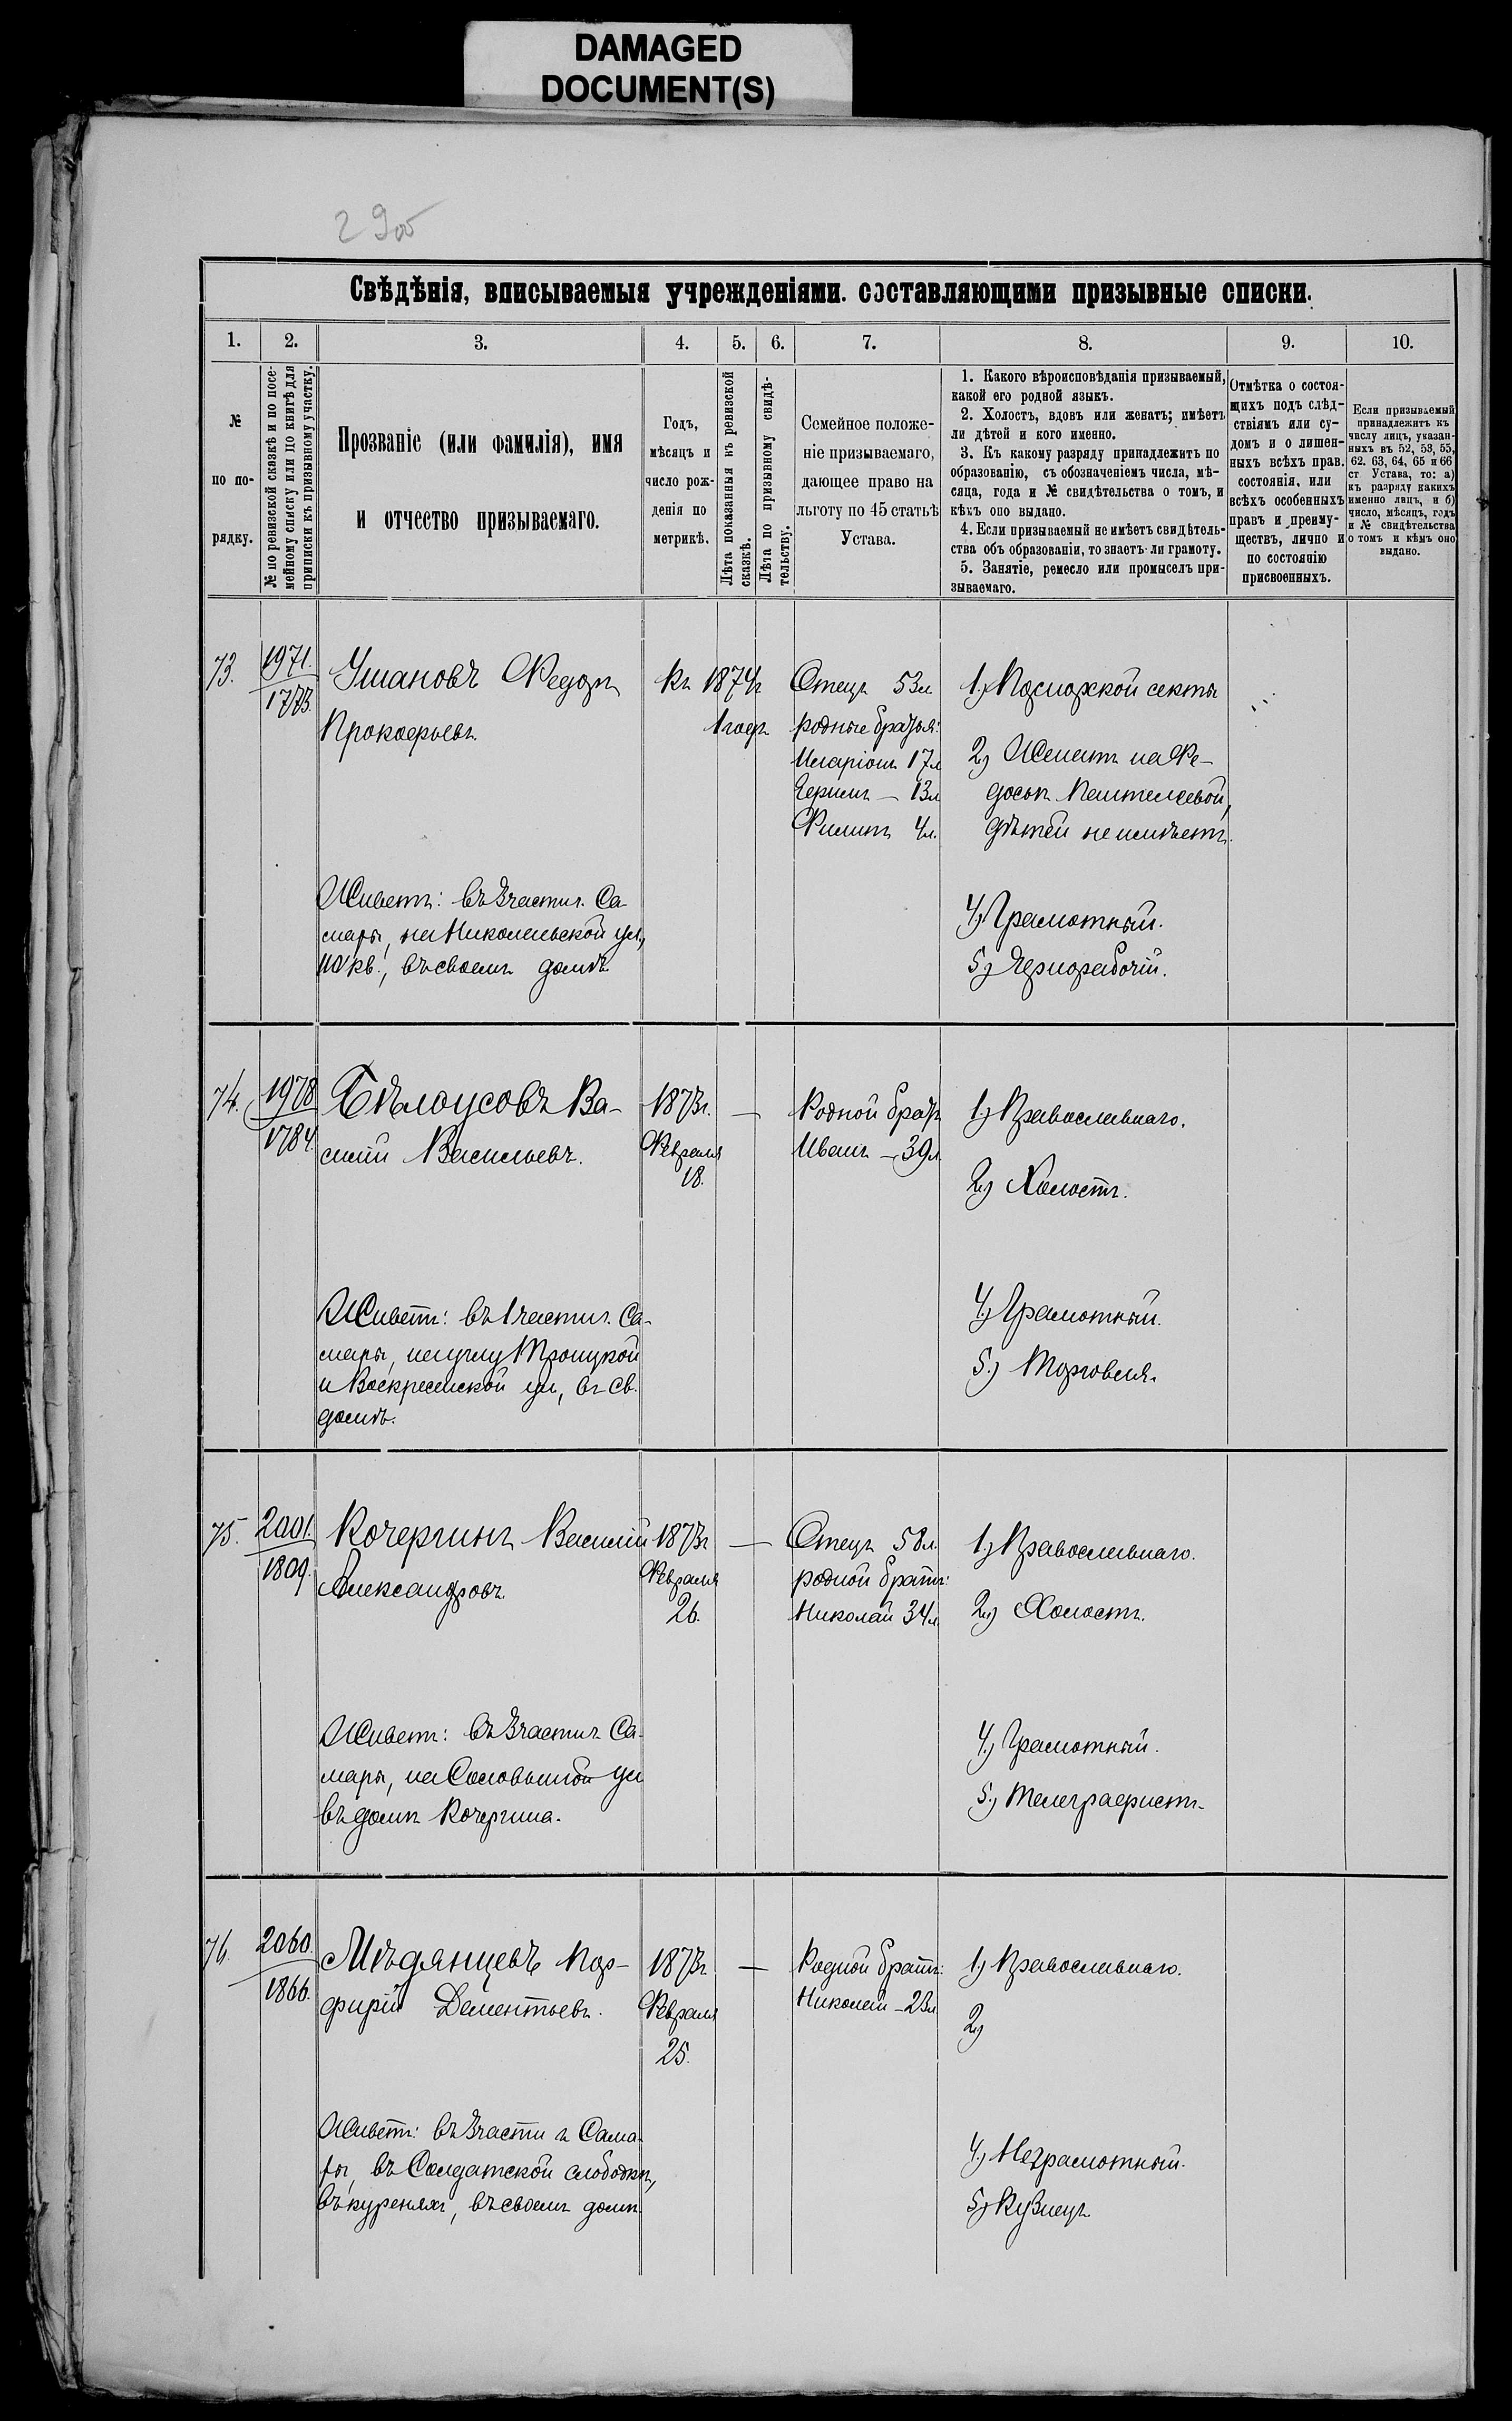 DAMAGED
DOCUMENT(S)
Свѣдѣнія, вписываемыя учрежденіями, составляющими призывные списки.
1. 2. 3. 4. 5. 6. 7. 8. 9. 10.
№
по по-
рядку.
№ по ревизской сказкѣ и по посе-
мейному списку или по книгѣ для
приписки къ призывному участку.
Прозваніе (или фамилія), имя
и отчество призываемаго.
Годъ,
мѣсяцъ и
число рож-
денія по
метрикѣ.
Лѣта показанныя къ ревизской
сказкѣ.
Лѣта по призывному свидѣ-
тельству.
Семейное положе-
ніе призываемаго,
дающее право на
льготу по 45 статьѣ
Устава.
1. Какого вѣроисповѣданія призываемый,
какой его родной языкъ.
2. Холостъ, вдовъ или женатъ; имѣетъ
ли дѣтей и кого именно.
3. Къ какому разряду принадлежитъ по
образованію, съ обозначеніемъ числа, мѣ-
сяца, года и № свидѣтельства о томъ, и
кѣхъ оно выдано.
4. Если призываемый не имѣетъ свидѣтель-
ства объ образованіи, то знаетъ-ли грамоту.
5. Занятіе, ремесло или промыселъ при-
зываемаго.
Отмѣтка о состоя-
щихъ подъ слѣд-
ствіямъ или су-
домъ и о лишен-
ныхъ всѣхъ прав.
состоянія, или
всѣхъ особенныхъ
правъ и преиму-
ществъ, лично и
по состоянію
присвоенныхъ.
Если призываемый
принадлежитъ къ
числу лицъ, указан-
ныхъ въ 52, 53, 55,
62. 63, 64, 65 и 66
ст Устава, то: а)
къ разряду какихъ
именно лицъ, и б)
число, мѣсяцъ, годъ
и № свидѣтельства
о томъ и кѣмъ оно
выдано.
73.
1971.
1773.
Ушановъ Федоръ
Прокофьевъ.
Къ 1874г
1 годъ
Отецъ 53л.
родные братья:
Иларіонъ 17л
13л
Филипъ 4л.
1) Поморской секты
2) Женатъ на Ѳе-
досьѣ
дѣтей не имѣетъ.
Живетъ: въ 3 части г. Са-
мары, на Николаевской ул,
110 кв., въ своемъ домѣ
4.) Грамотный.
5) Чернорабочій.
74.
1978
1784.
Бѣлоусовъ Ва-
силій Васильевъ.
1873г.
Февраля
18.
—
Родной братъ
Иванъ — 39л
1) Православнаго.
2.) Холостъ.
Живетъ: въ 1 части г. Са-
мары, на углу Троицкой
и Воскресенской ул, въ св.
домѣ.
4.) Грамотный.
5.) Торговля.
75.
2001.
1809.
Кочергинъ Василій
Александровъ.
1873г
Февраля
26.
—
Отецъ 58л.
родной братъ:
Николай 34л
1) Православнаго.
2.) Холостъ.
Живетъ: въ 3 части г. Са-
мары, на Соловьиной ул
въ домѣ Кочергина.
4.) Грамотный.
5.) Телеграфистъ.
76.
2060.
1866.
Мѣдянцевъ Пор-
фирій Дементьевъ.
1873г.
Февраля
25.
—
Родной братъ:
Николай — 23л
1) Православнаго.
2)
Живетъ: въ 3 части г Сама-
ры, въ Солдатской слободкѣ,
въ куреняхъ, въ своемъ домѣ.
4.) Неграмотный.
5) Кузнецъ